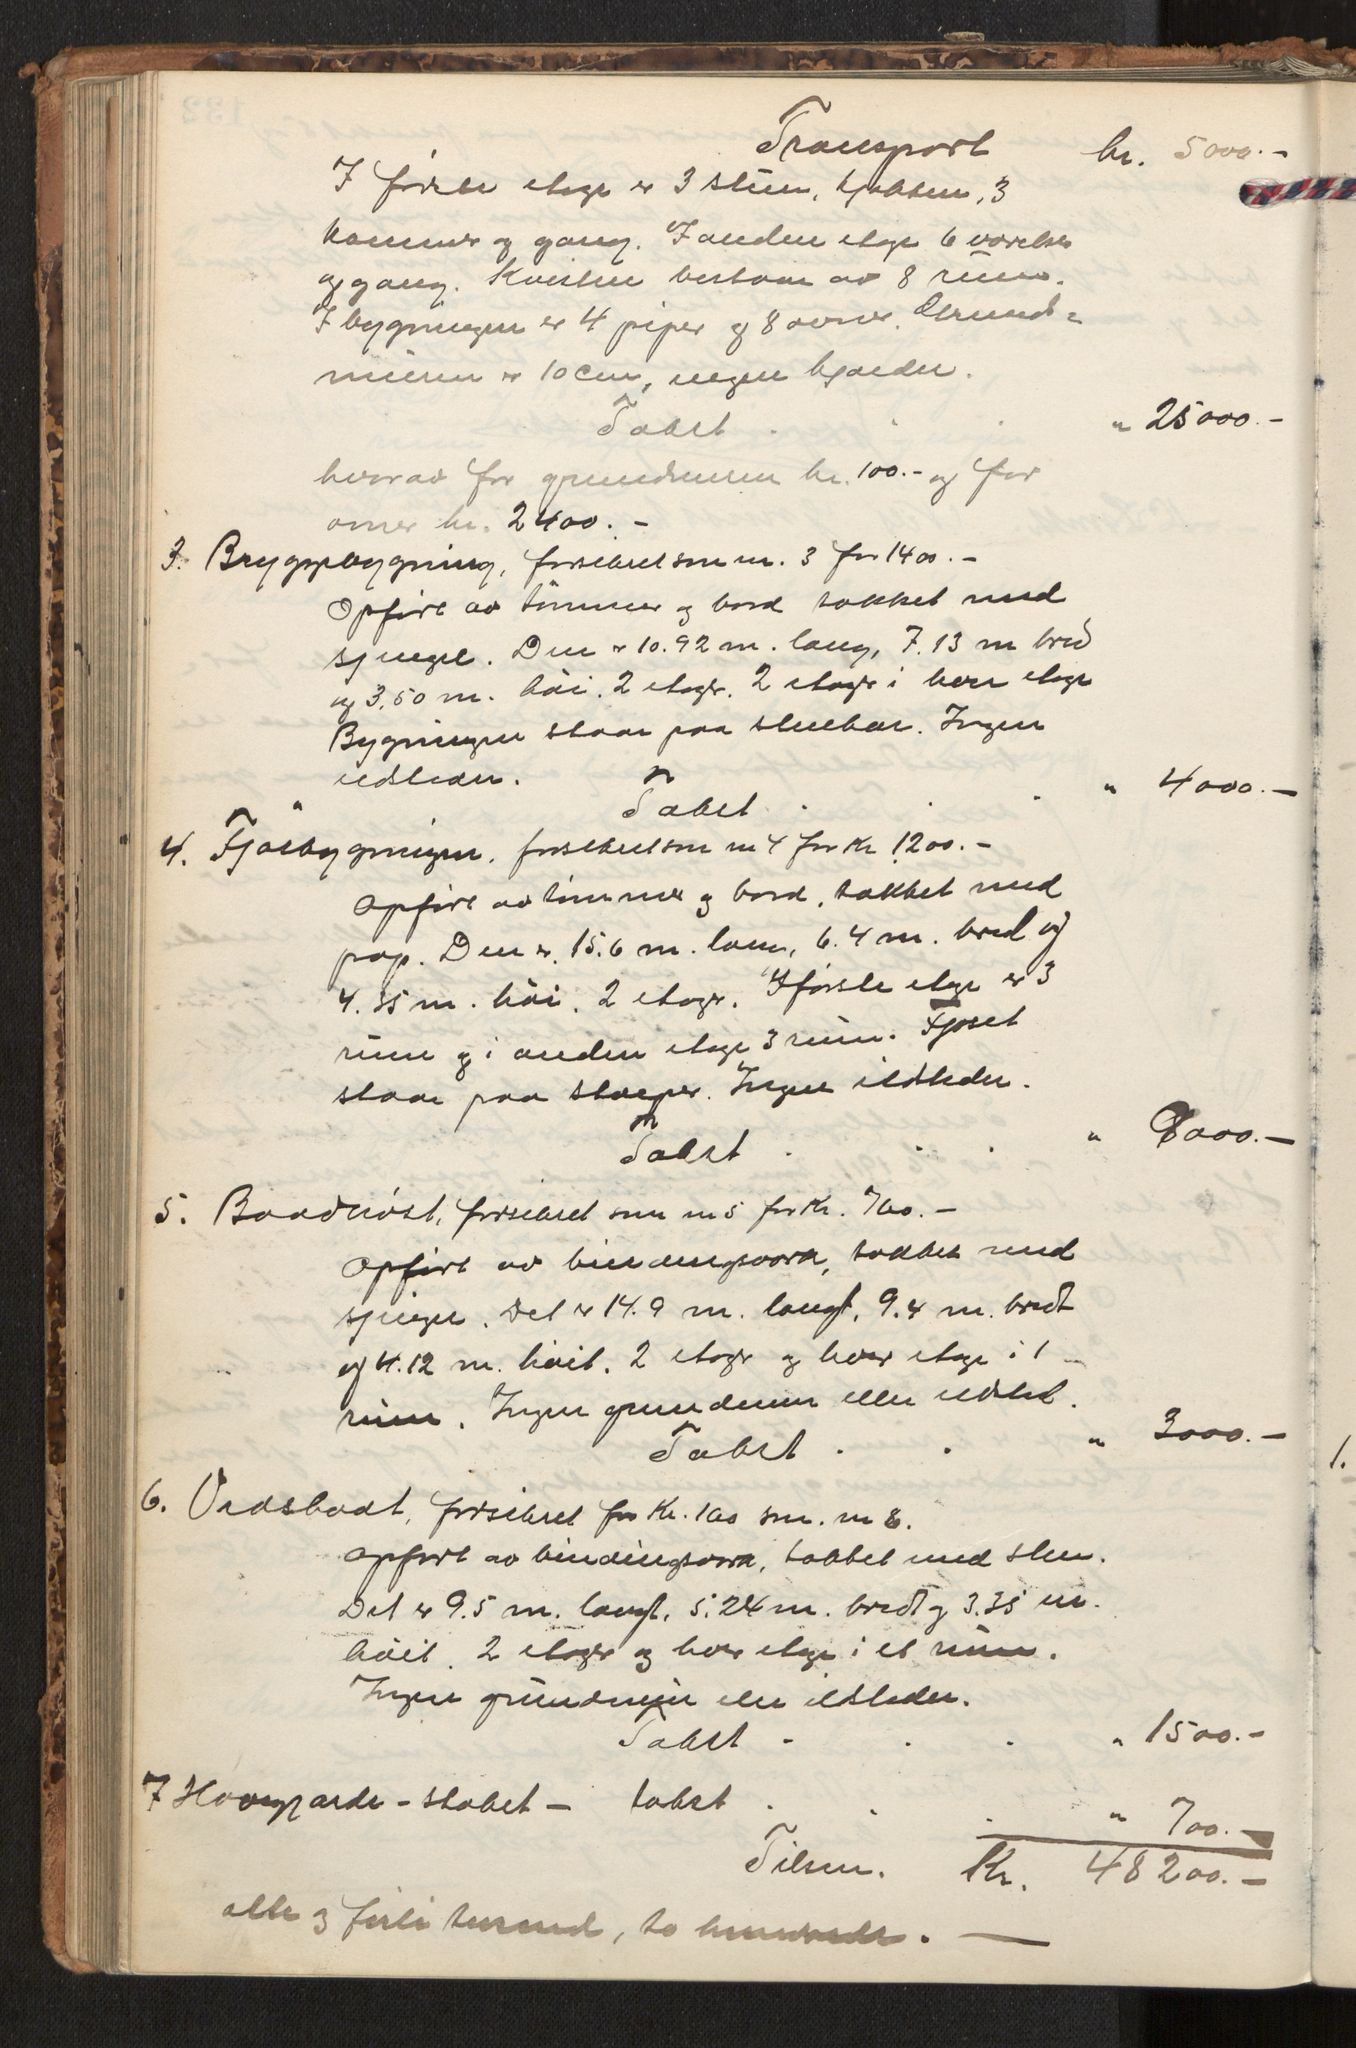 Transport kr. 5000.-
I förste etage er 3 stuer, kjøkken, 3
kammer og gang. I anden etage 6 værelser
og gang. Kvisten bestaar av 8 rum.
I bygningen er 4 piper og 8 ovner. Grund-
muren er 10 cm, ingen kjælder.
Takst . . . " 25000.-
hvorav for grundmuren kr. 100.- og for
ovner kr. 2400.-
3. Bryggebygning, forsikret som nr. 3 for 1400.-
Opfört av tömmer og bord takket med
sjingel. Den er 10.92 m. lang, 7.13 m bred
og 3.50 m. höi. 2 etager. 2 etager i hver etage
Bygningen staar paa stenkar. Ingen
ildsteder.
Takst . . . " 4000.-
4. Fjösbygningen, forsikret som nr 4 for Kr 1200.-
Opfört av tömmer og bord, takket med
pap. Den er 15.6 m. lang, 6.4 m. bred og
4.35 m. höi. 2 etager. I förste etage er 3
rum og i anden etage 3 rum. Fjöset
staar paa stolper. Ingen ildsteder.
Takst . . . " 9000.-
5. Baadnöst, forsikret som nr 5 for Kr. 700.-
Opfört av bindingsverk, takket med
sjingel. Det er 14.9 m. langt, 9.4 m. bredt
og 4.12 m. höit. 2 etager og hver etage i 1
rum. Ingen grundmur eller ildsted.
Takst . . " 3000.-
6. Vedskaat, forsikret for Kr. 100 som nr 8.
Opfört av bindingsverk, takket med sten.
Det er 9.5 m. langt, 5.24 m. bredt og 3.35 m.
höit. 2 etager og hver etage i et rum.
Ingen grundmur eller ildsteder.
Takst . . . " 1500.-
7 Havegjærde - staket - takst . . . " 700.-
Tilsm. Kr. 48200.-
otte og förti tusend, to hundrede. —
1.